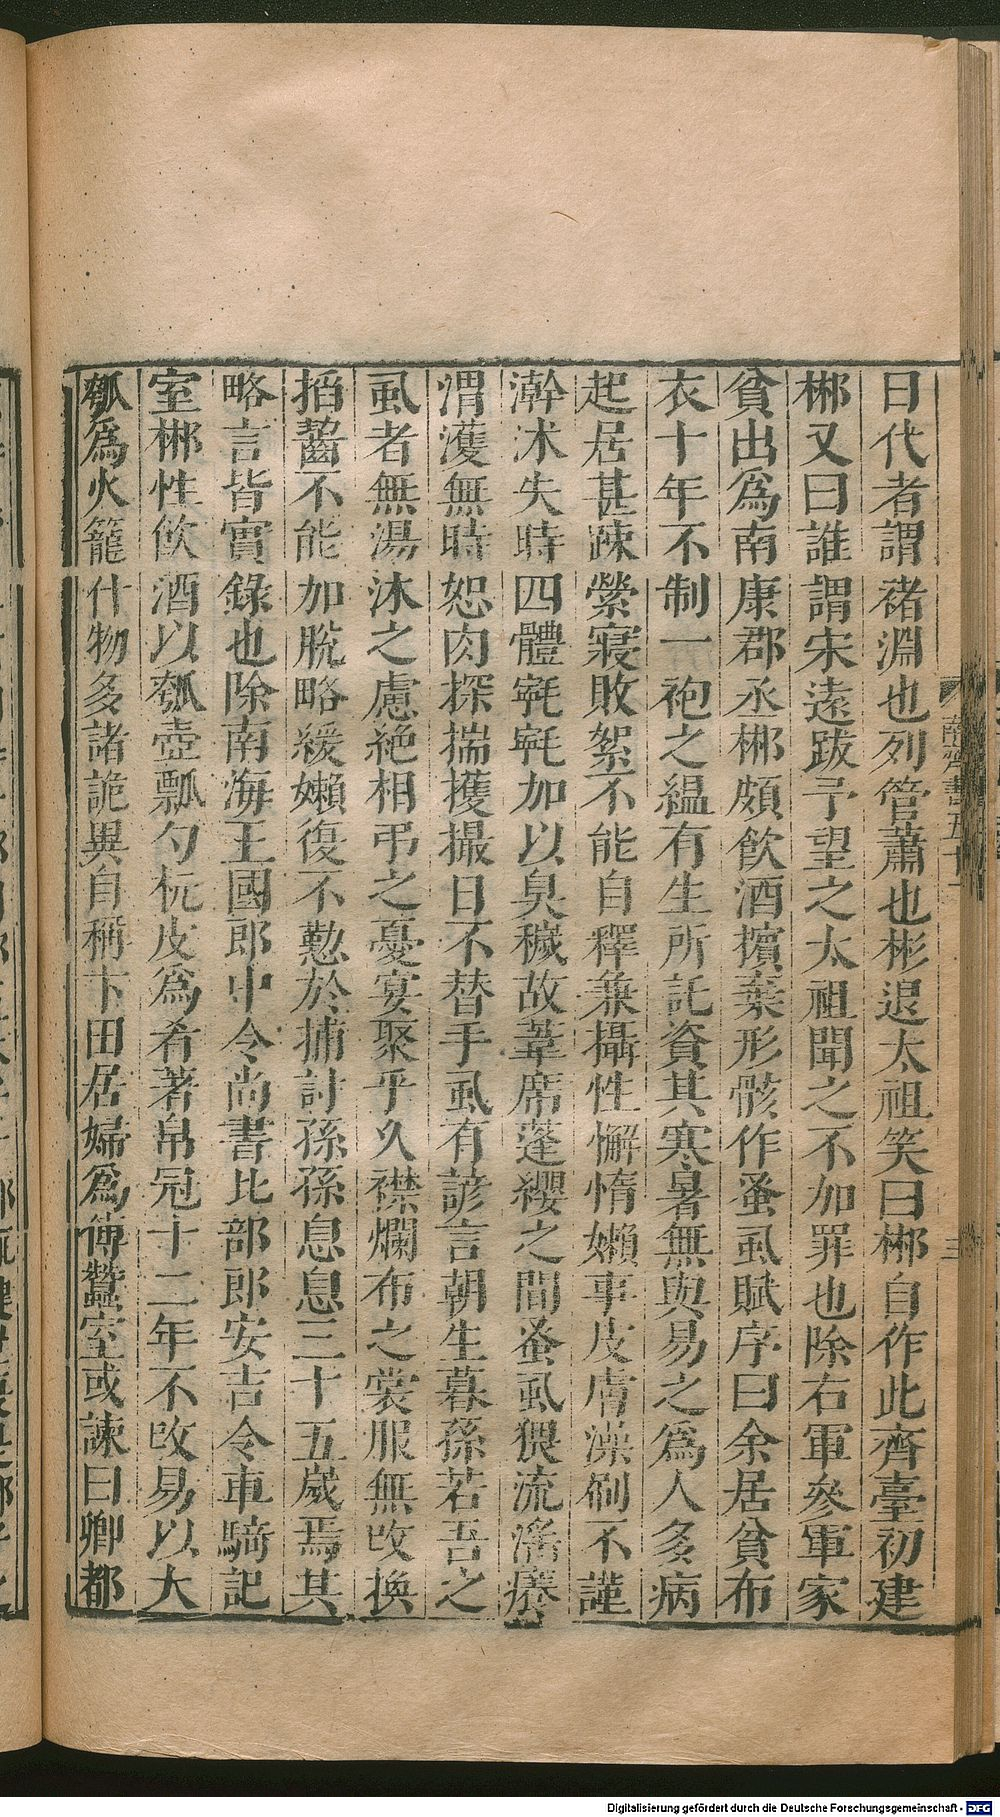 曰代者謂褚淵也列管蕭也彬退太祖笑曰彬自作此齊臺初建
彬又曰誰謂宋遠跂予望之太祖聞之不加罪也除右軍參軍家
貧出爲南康郡丞彬頗飲酒擯棄形骸作蚤虱賦序曰余居貧布
衣十年不制一袍之縕有生所託資其寒暑無與易之爲人多病
起居甚疎縈寢敗絮不能自釋兼攝性懈惰嬾事皮膚澡刷不謹
澣沐失時四體𣬛𣬛加以臭穢故葦席蓬纓之間蚤虱猥流淫癢
渭濩無時恕肉探揣擭撮日不替手虱有諺言朝生暮孫若吾之
虱者無湯沐之慮絶相弔之憂宴聚乎久襟爛布之裳服無改換
搯齧不能加脫略緩嬾復不懃於捕討孫孫息息三十五歲焉其
略言皆實錄也除南海王國郎中令尚書比部郎安吉令車騎記
室彬性飲酒以瓠壺瓢勺杬皮爲肴著帛冠十二年不改易以大
瓠爲火籠什物多諸詭異自稱卞田居婦爲傅蠶室或諫曰卿都
南齊書五十二
三
Digitalisierung gefördert durch die Deutsche Forschungsgemeinschaft - DFG